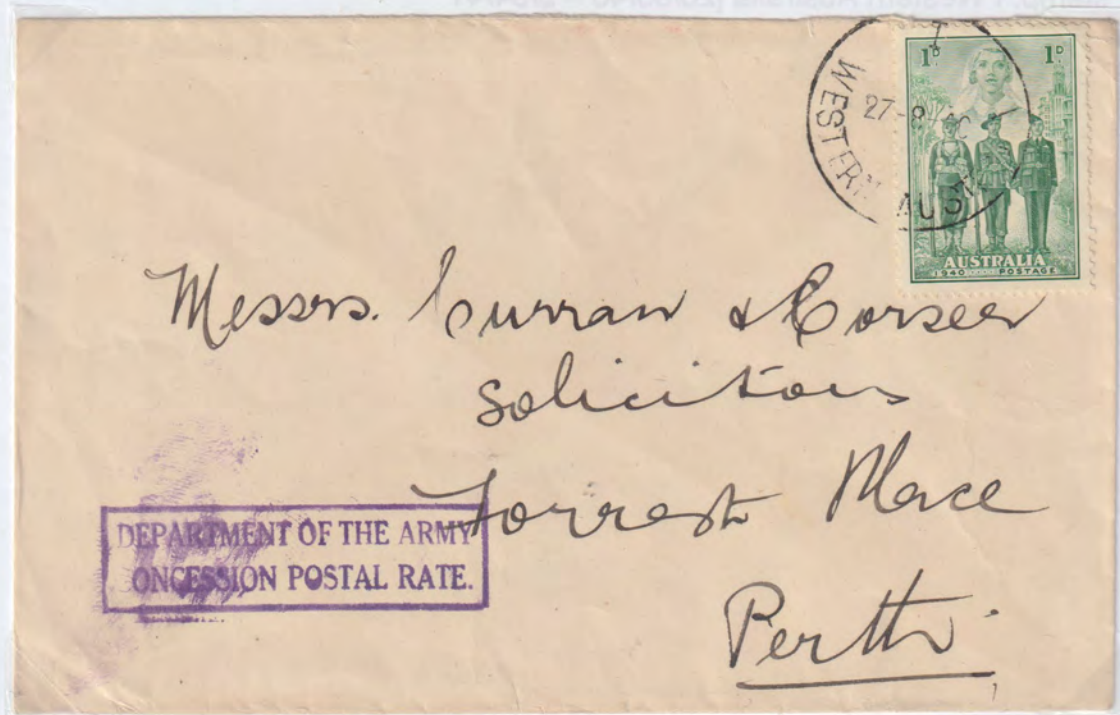 1D. 1D.
WESTERN AUST
27-8-40
AUSTRALIA
1940 POSTAGE
Messrs. Curran & Corser
Solicitors
Forrest Place
Perth.
DEPARTMENT OF THE ARMY
ONCESSION POSTAL RATE.